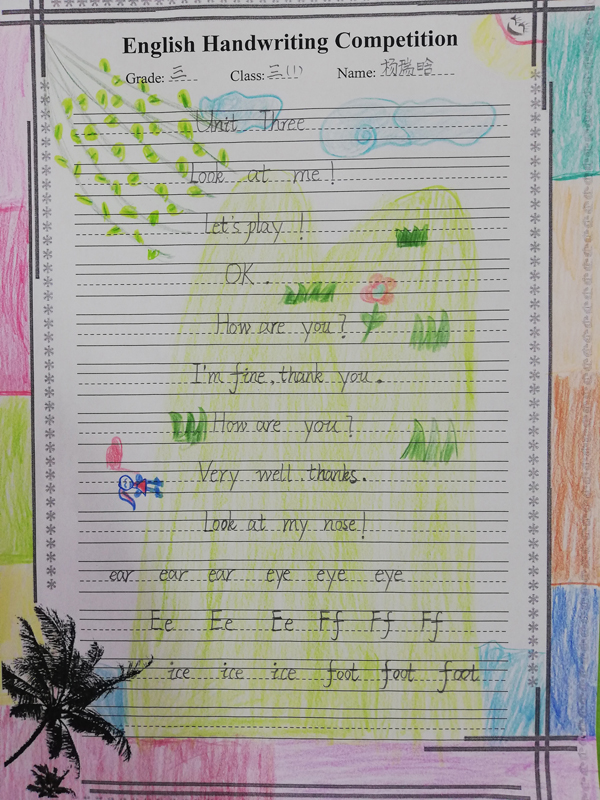 English Handwriting Competition
Grade: 三 Class: 三(1) Name: 杨瑞晗
Unit Three
Look at me!
Let's play!
OK.
How are you?
I'm fine, thank you.
How are you?
Very well, thanks.
Look at my nose!
ear ear ear eye eye eye
Ee Ee Ee Ff Ff Ff
ice ice ice foot foot foot